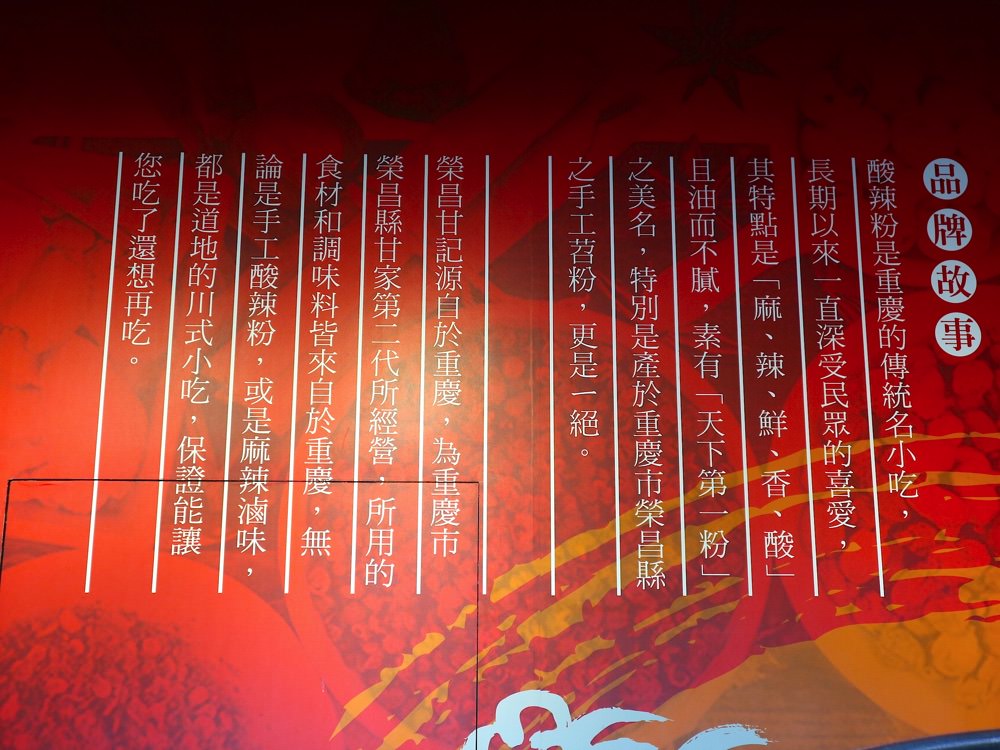 品牌故事
酸辣粉是重慶的傳統名小吃，
長期以來一直深受民眾的喜愛，
其特點是「麻、辣、鮮、香、酸」
且油而不膩，素有「天下第一粉」
之美名，特別是產於重慶市榮昌縣
之手工苕粉，更是一絕。
榮昌甘記源自於重慶，為重慶市
榮昌縣甘家第二代所經營，所用的
食材和調味料皆來自於重慶，無
論是手工酸辣粉，或是麻辣滷味，
都是道地的川式小吃，保證能讓
您吃了還想再吃。